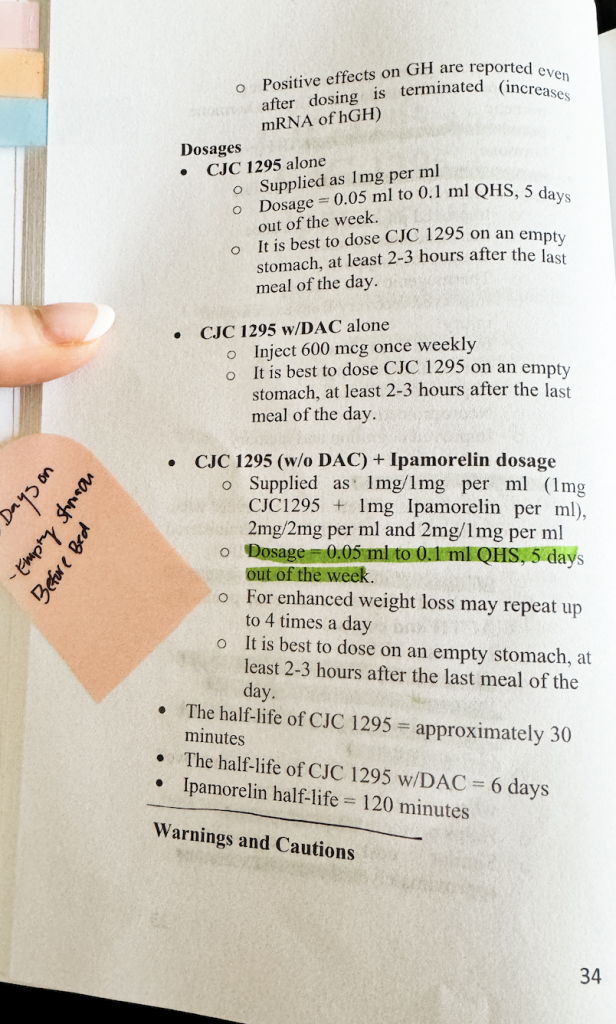 ○ Positive effects on GH are reported even
after dosing is terminated (increases
mRNA of hGH)
Dosages
• CJC 1295 alone
○ Supplied as 1mg per ml
○ Dosage = 0.05 ml to 0.1 ml QHS, 5 days
out of the week.
○ It is best to dose CJC 1295 on an empty
stomach, at least 2-3 hours after the last
meal of the day.
• CJC 1295 w/DAC alone
○ Inject 600 mcg once weekly
○ It is best to dose CJC 1295 on an empty
stomach, at least 2-3 hours after the last
meal of the day.
• CJC 1295 (w/o DAC) + Ipamorelin dosage
○ Supplied as 1mg/1mg per ml (1mg
CJC1295 + 1mg Ipamorelin per ml),
2mg/2mg per ml and 2mg/1mg per ml
○ Dosage = 0.05 ml to 0.1 ml QHS, 5 days
out of the week.
○ For enhanced weight loss may repeat up
to 4 times a day
○ It is best to dose on an empty stomach, at
least 2-3 hours after the last meal of the
day.
• The half-life of CJC 1295 = approximately 30
minutes
• The half-life of CJC 1295 w/DAC = 6 days
• Ipamorelin half-life = 120 minutes
Warnings and Cautions
34
Days on
- Empty Stomach
Before Bed